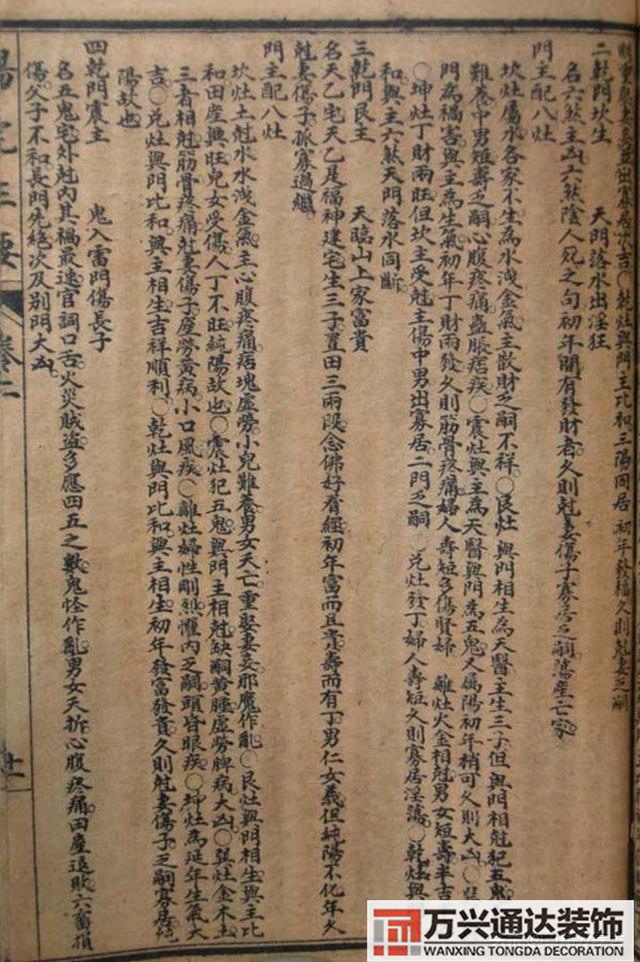 二乾門坎主　天門落水出淫狂
名六煞主凶六煞陰人死之句初年間有發財者久則尅妻傷子寡居乏嗣蕩產亡家
門主配八灶
坎灶屬水各家不生為水洩金氣主散財乏嗣不祥〇艮灶與門相生為天醫主生三子但與門相尅犯五鬼
難養中男短壽乏嗣心腹疼痛蠱脹痞疾〇震灶與主為天醫與門為五鬼又屬陽初年稍可久則大凶〇
門為禍害與主為生氣初年丁財兩發久則筋骨疼痛婦人壽短多傷賢婦　離灶火金相尅男女短壽半吉
〇坤灶丁財兩旺但坎主受尅主傷中男出寡居二門乏嗣　兌灶發丁婦人壽短久則寡居淫蕩〇乾灶與
和與主六煞天門落水同斷
三乾門艮主　天臨山上家富貴
名天乙宅天乙是福神建宅生三子置田三兩段念佛好看經初年富而且貴壽而有丁男仁女義但純陽不化年久
尅妻傷子孤寡過繼
門主配八灶
坎灶土尅水水洩金氣主心腹疼痛痞塊虛勞小兒難養男女夭亡重娶妻妾邪魔作亂〇艮灶與門相生與主比
和田產興旺兒女受傷人丁不旺純陽故也〇震灶犯五鬼與門主相尅缺嗣黃腫虛勞脾病大凶〇巽灶金木土
三者相尅筋骨疼痛尅妻傷子產勞黃病小口風疾〇離灶婦性剛烈懼內乏嗣頭昏眼疾〇坤灶為延年生氣大
吉〇兌灶與門比和與主相生吉祥順利〇乾灶與門比和與主相生初年發富發貴久則尅妻傷子乏嗣寡居純
陽故也
四乾門震主　鬼入雷門傷長子
名五鬼宅外尅內其禍最速官詞口舌火災賊盜多應四五之數鬼怪作亂男女夭折心腹疼痛田產退敗六畜損
傷父子不和長門先絕次及別門大凶
陽宅三要
卷二
万兴通达装饰
WANXING TONGDA DECORATION